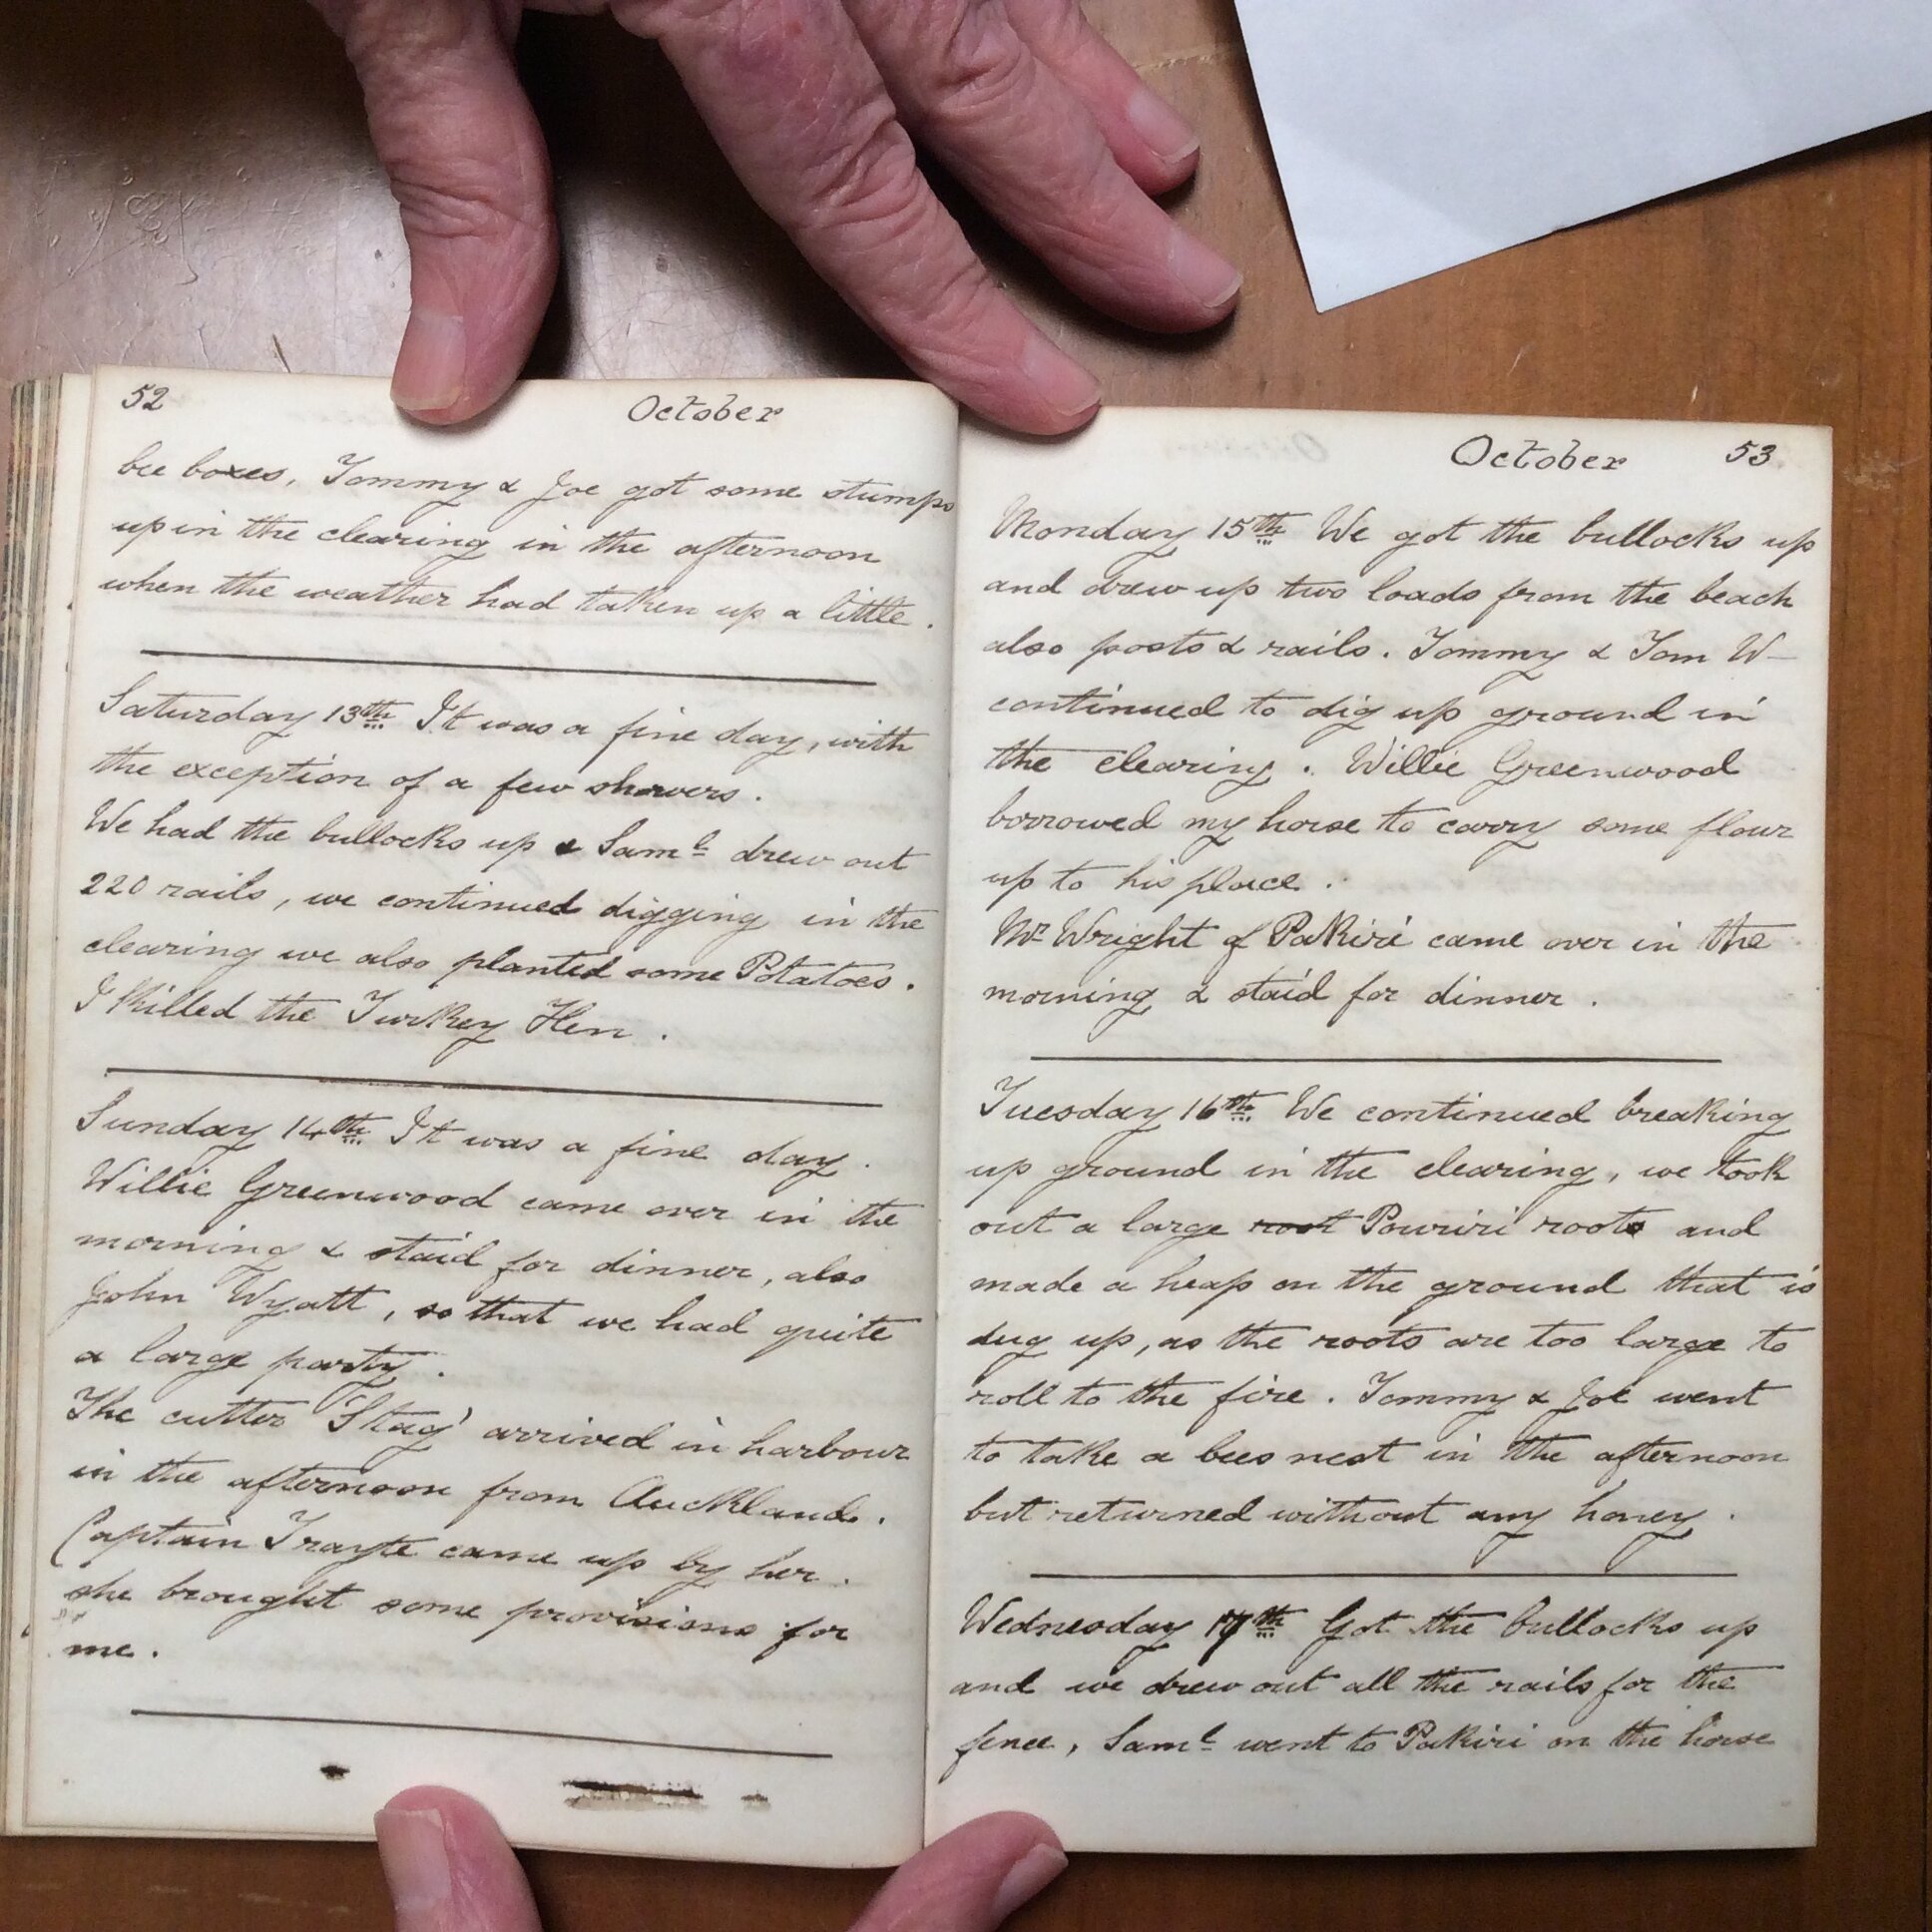 52 October
bee boxes, Tommy & Joe got some stumps
up in the clearing in the afternoon
when the weather had taken up a little.
Saturday 13th It was a fine day, with
the exception of a few showers.
We had the bullocks up & Saml drew out
220 rails, we continued digging in the
clearing we also planted some Potatoes.
I Killed the Turkey Hen.
Sunday 14th It was a fine day.
Willie Greenwood came over in the
morning & staid for dinner, also
John Wyatt, so that we had quite
a large party.
The cutter 'Stag' arrived in harbour
in the afternoon from Auckland.
Captain Trayte came up by her.
she brought some provisions for
me.
October 53
Monday 15th We got the bullocks up
and drew up two loads from the beach
also posts & rails. Tommy & Tom W-
continued to dig up ground in
the clearing. Willie Greenwood
borrowed my horse to carry some flour
up to his place.
Mr Wright of Pakiri came over in the
morning & staid for dinner.
Tuesday 16th We continued breaking
up ground in the clearing, we took
out a large root Powriri roots and
made a heap on the ground that is
dug up, as the roots are too large to
roll to the fire. Tommy & Joe went
to take a bees nest in the afternoon
but returned without any honey.
Wednesday 17th Got the bullocks up
and we drew out all the rails for the
fence, Saml went to Pakiri on the horse